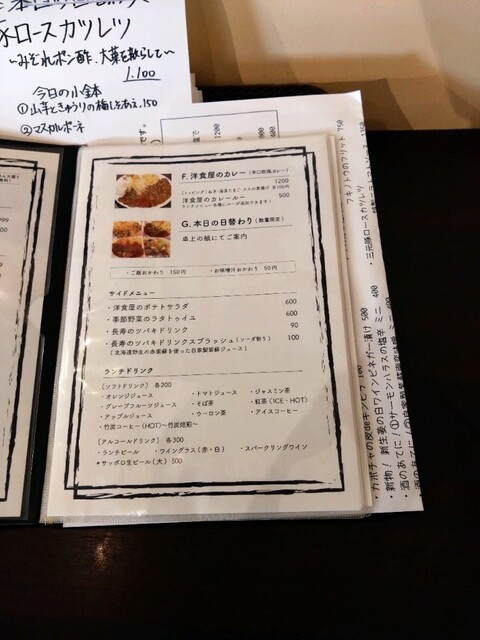 豚ロースカツレツ
〜みぞれポン酢、大葉を散らして〜
1.100
今日の小鉢
①山芋ときゅうりの梅しそあえ.150
②マスカルポーネ
F. 洋食屋のカレー (辛口欧風カレー)
1200
洋食屋のカレールー 500
G. 本日の日替わり (数量限定)
卓上の紙にてご案内
・ご飯おかわり 150円 ・お味噌汁おかわり 50円
サイドメニュー
・洋食屋のポテトサラダ 600
・季節野菜のラタトゥイユ 600
・長寿のツバキドリンク 90
・長寿のツバキドリンクスプラッシュ(ソーダ割り) 100
(北海道野生の赤紫蘇を使った自家製紫蘇ジュース)
ランチドリンク
[ソフトドリンク] 各200
・オレンジジュース ・トマトジュース ・ジャスミン茶
・グレープフルーツジュース ・そば茶 ・紅茶(ICE・HOT)
・アップルジュース ・ウーロン茶 ・アイスコーヒー
・竹炭コーヒー(HOT)〜竹炭焙煎〜
[アルコールドリンク] 各300
・ランチビール ・ワイングラス(赤・白) ・スパークリングワイン
*サッポロ生ビール(大) 500
フキノトウのフリット 750
・三元豚ロースカツレツ
・カボチャの皮deキンピラ 100
・新物! 新生姜の白ワインビネガー漬け 500
・酒のあてに!①サーモンハラスの塩辛 ミニ 400